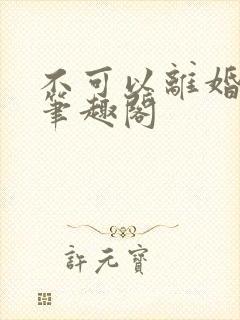 不可以離婚
筆趣閣
許元寶